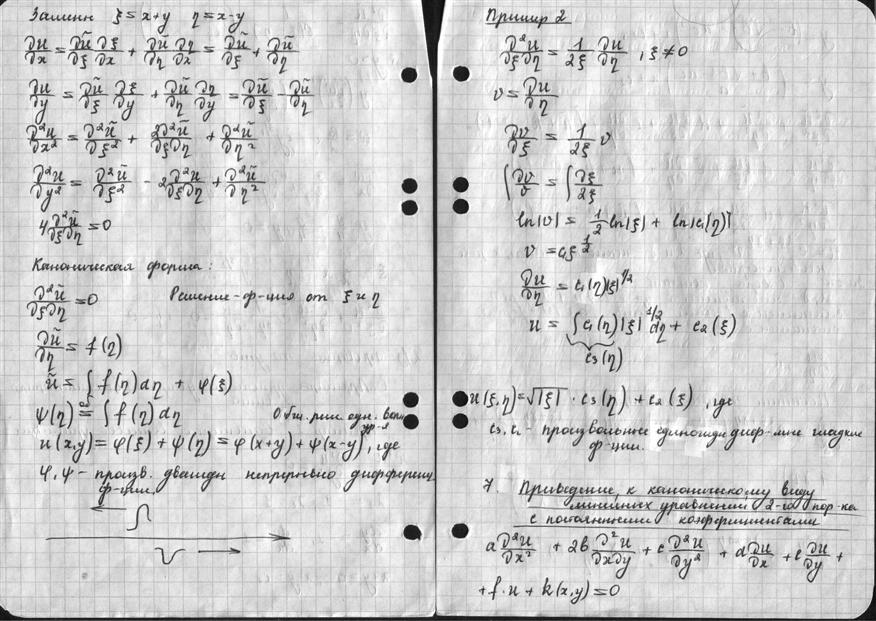 Замени ξ = x+y η = x-y
∂u/∂x = ∂ũ/∂ξ ∂ξ/∂x + ∂ũ/∂η ∂η/∂x = ∂ũ/∂ξ + ∂ũ/∂η
∂u/∂y = ∂ũ/∂ξ ∂ξ/∂y + ∂ũ/∂η ∂η/∂y = ∂ũ/∂ξ - ∂ũ/∂η
∂²u/∂x² = ∂²ũ/∂ξ² + 2∂²ũ/∂ξ∂η + ∂²ũ/∂η²
∂²u/∂y² = ∂²ũ/∂ξ² - 2∂²u/∂ξ∂η + ∂²ũ/∂η²
4∂²ũ/∂ξ∂η = 0
Каноническая форма:
∂²ũ/∂ξ∂η = 0 Решение - ф-ция от ξ и η
∂ũ/∂η = f(η)
ũ = ∫ f(η)dη + φ(ξ)
ψ(η) = ∫ f(η)dη Общ. реш. одн. волн.
ур-я
u(x,y) = φ(ξ) + ψ(η) = φ(x+y) + ψ(x-y), где
φ, ψ - произв. дважды непрерывно дифференц.
ф-ции.
Пример 2
∂²u/∂ξ∂η = 1/2ξ ∂u/∂η , ξ ≠ 0
v = ∂u/∂η
∂v/∂ξ = 1/2ξ v
∫∂v/v = ∫∂ξ/2ξ
ln|v| = 1/2 ln|ξ| + ln|c₁(η)|
v = c₁ξ^1/2
∂u/∂η = c₁(η)|ξ|^1/2
u = ∫c₁(η)|ξ|^1/2 dη + c₂(ξ)
c₃(η)
u(ξ,η) = √|ξ| · c₃(η) + c₂(ξ) , где
c₃, c₂ - произвольные единожды диф-мые гладкие
ф-ции.
7. Приведение к каноническому виду
линейных уравнений 2-го пор-ка
с постоянными коэффициентами
a∂²u/∂x² + 2b∂²u/∂x∂y + c∂²u/∂y² + d∂u/∂x + e∂u/∂y +
+ f·u + k(x,y) = 0